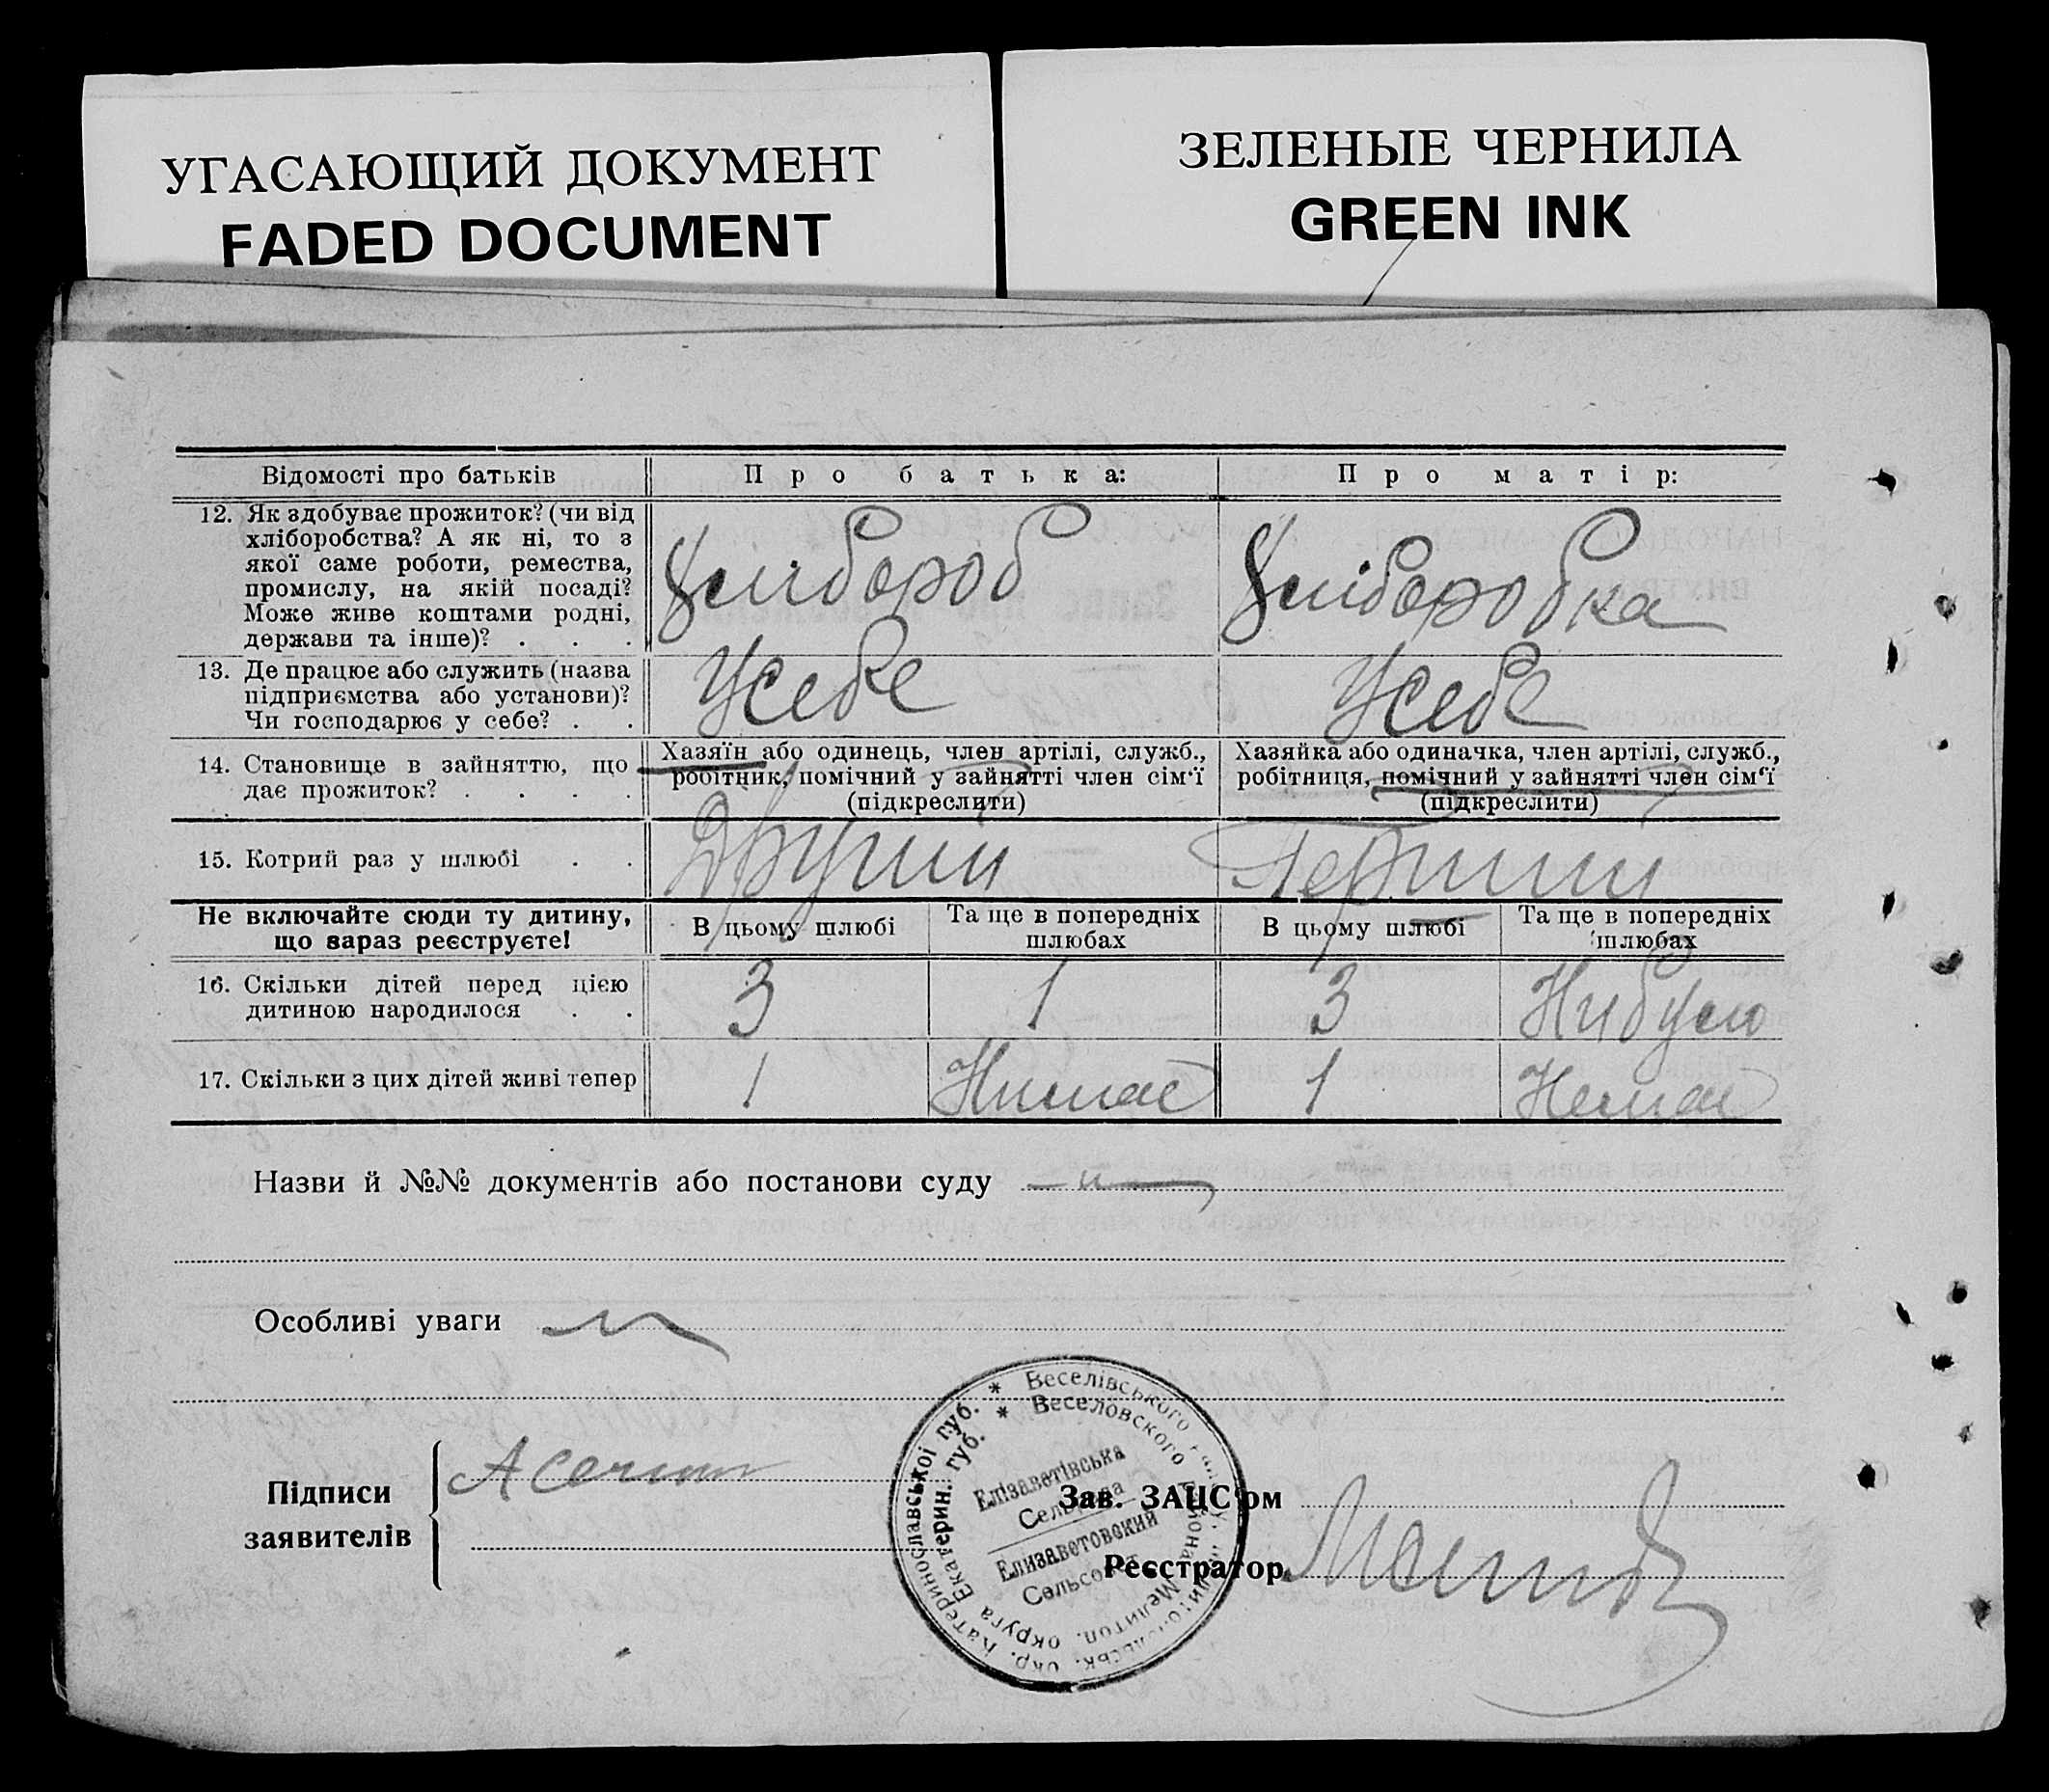 УГАСАЮЩИЙ ДОКУМЕНТ
FADED DOCUMENT
ЗЕЛЕНЫЕ ЧЕРНИЛА
GREEN INK
Відомості про батьків
Про батька:
Про матір:
12. Як здобуває прожиток? (чи від
хліборобства? А як ні, то з
якої саме роботи, ремества,
промислу, на якій посаді?
Може живе коштами родні,
держави та інше)? . . .
Хлибороб
Хліборобка
13. Де працює або служить (назва
підприємства або установи)?
Чи господарює у себе? . .
Усебе
Усебе
14. Становище в зайняттю, що
дає прожиток? . . . .
Хазяїн або одинець, член артілі, служб.,
робітник, помічний у зайнятті член сім'ї
(підкреслити)
Хазяйка або одиначка, член артілі, служб.,
робітниця, помічний у зайнятті член сім'ї
(підкреслити)
15. Котрий раз у шлюбі . .
Другий
Перший
Не включайте сюди ту дитину,
що зараз реєструєте!
В цьому шлюбі
Та ще в попередніх
шлюбах
В цьому шлюбі
Та ще в попередніх
шлюбах
16. Скільки дітей перед цією
дитиною народилося . .
3
1
3
Нибуло
17. Скільки з цих дітей живі тепер
1
Нимає
1
Немає
Назви й №№ документів або постанови суду
Особливі уваги
Підписи
заявителів
Зав. ЗАЦС'ом
Реєстратор
* Веселівського
окр. Катеринославської губ.
* Веселовского района Мелитоп. округа Екатерин. губ.
Елізаветівська
Сельрада
Елизаветовский
Сельсовет